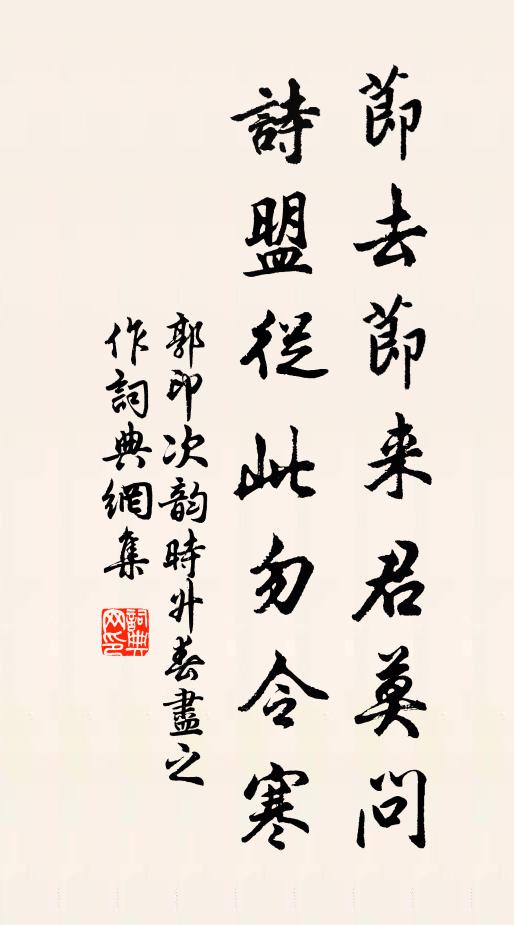 節去節来君莫問
詩盟從此勿令寒
郭印次韵時升春盡之
作詞典網集
詞典網印